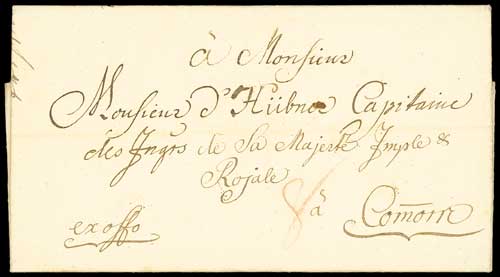 à Monsieur
Monsieur d'Hübner Capitaine
des Ingrs de Sa Majesté Imple &
Rojale
à Comorre
ex offo